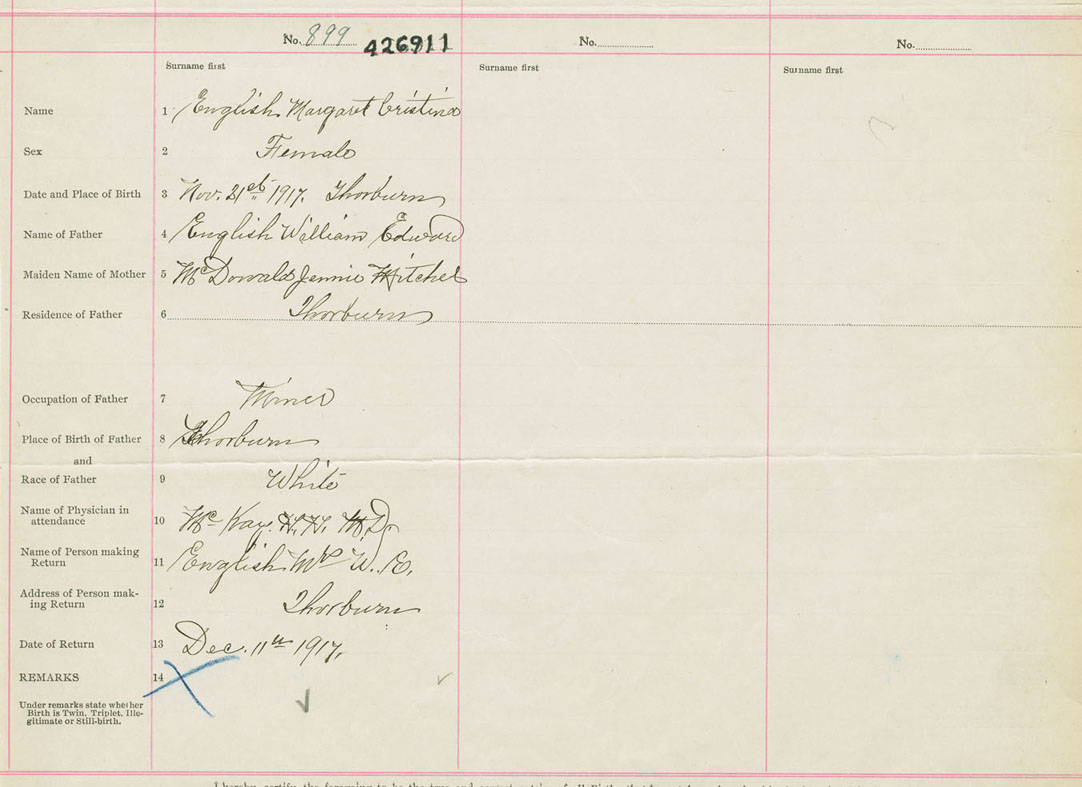 No. 899 426911 No. No.
Surname first Surname first Surname first
Name 1 English Margaret Cristina
Sex 2 Female
Date and Place of Birth 3 Nov. 21st 1917. Thorburn
Name of Father 4 English William Edward
Maiden Name of Mother 5 McDonald Jennie Mitchel
Residence of Father 6 Thorburn
Occupation of Father 7 Miner
Place of Birth of Father 8 Thorburn
and
Race of Father 9 White
Name of Physician in
attendance 10 McKay. H. H. M.D.
Name of Person making
Return 11 English Mrs W. E.
Address of Person mak-
ing Return 12 Thorburn
Date of Return 13 Dec. 11th 1917.
REMARKS 14
Under remarks state whether
Birth is Twin, Triplet, Ille-
gitimate or Still-birth.